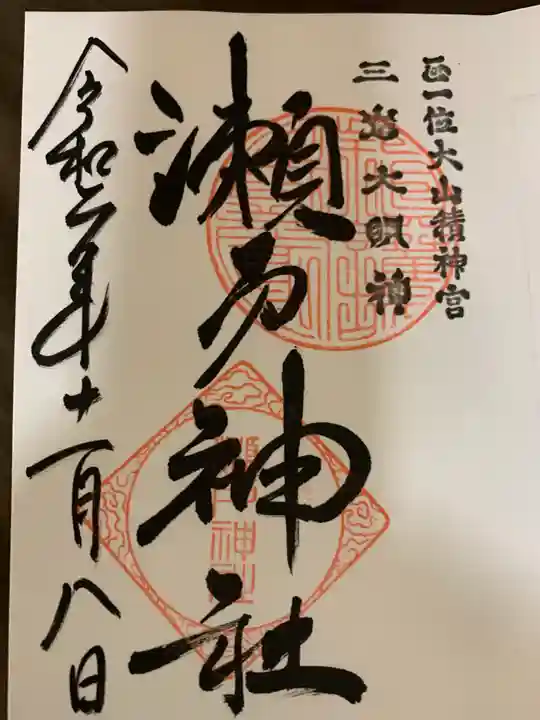 正一位大山積神宮
三島大明神
瀬戸神社
令和二年十一月八日